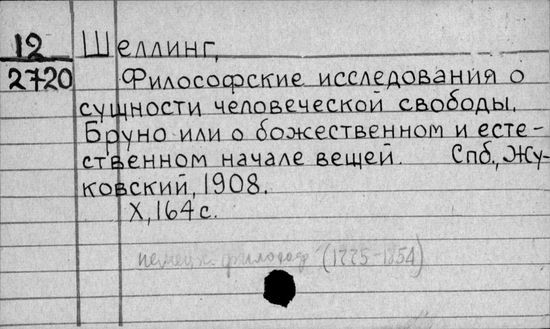 12 Шеллинг,
2720 Философские исследования о
сущности человеческой свободы.
Бруно или о божественном и есте-
ственном начале вещей. Спб., Жу-
ковский, 1908.
X, 164 с.
немецк. философ (1775-1854)